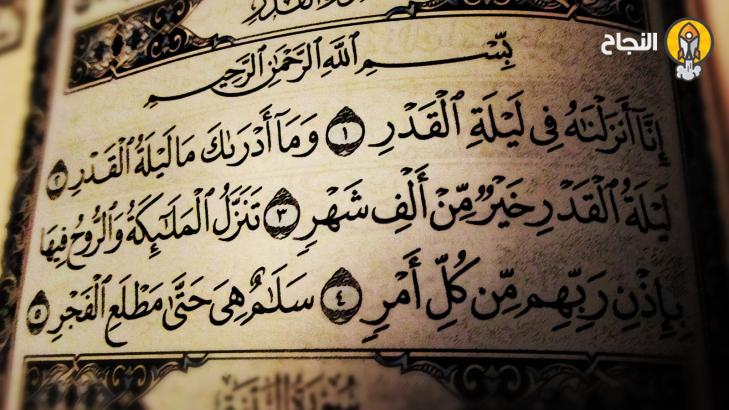 النجاح
سورة القدر
بِسْمِ ٱللَّهِ ٱلرَّحْمَٰنِ ٱلرَّحِيمِ
إِنَّآ أَنزَلْنَٰهُ فِى لَيْلَةِ ٱلْقَدْرِ ١ وَمَآ أَدْرَىٰكَ مَا لَيْلَةُ ٱلْقَدْرِ ٢
لَيْلَةُ ٱلْقَدْرِ خَيْرٌ مِّنْ أَلْفِ شَهْرٍ ٣ تَنَزَّلُ ٱلْمَلَٰٓئِكَةُ وَٱلرُّوحُ فِيهَا
بِإِذْنِ رَبِّهِم مِّن كُلِّ أَمْرٍ ٤ سَلَٰمٌ هِىَ حَتَّىٰ مَطْلَعِ ٱلْفَجْرِ ٥
سُورَةُ البَيِّنَةِ